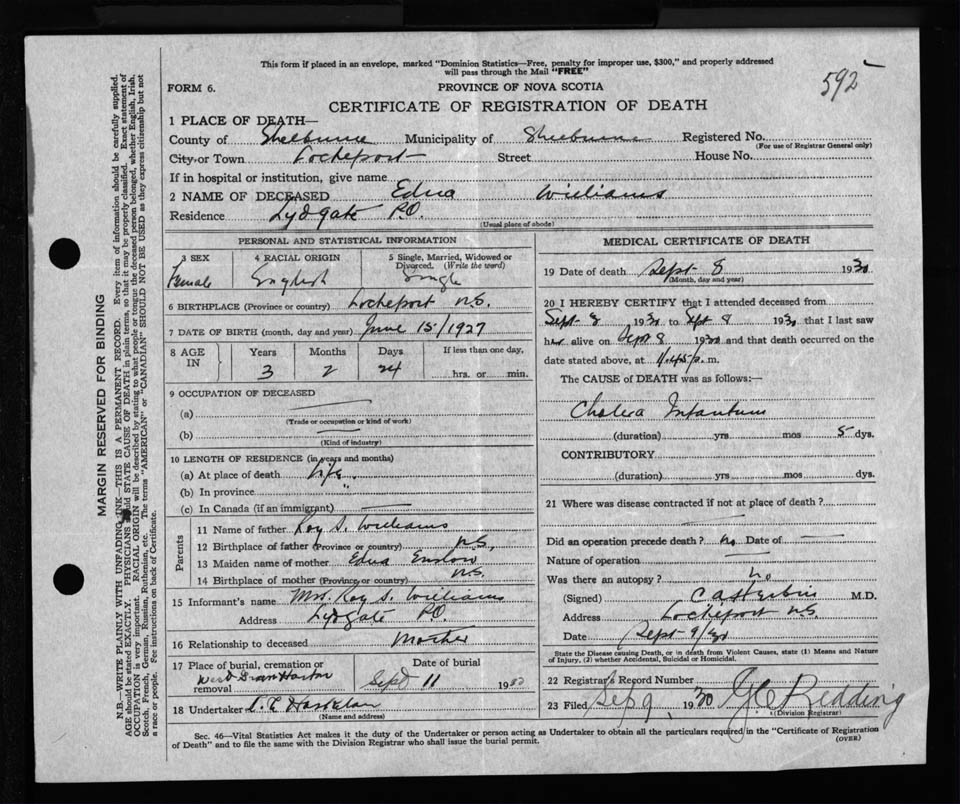 This form if placed in an envelope, marked "Dominion Statistics—Free, penalty for improper use, $300," and properly addressed
will pass through the Mail "FREE"
592
FORM 6.
PROVINCE OF NOVA SCOTIA
CERTIFICATE OF REGISTRATION OF DEATH
1 PLACE OF DEATH—
County of Shelburne Municipality of Shelburne Registered No.
(For use of Registrar General only)
City or Town Lockeport Street House No.
If in hospital or institution, give name
2 NAME OF DECEASED Edna Williams
Residence Lydgate P.O.
(Usual place of abode)
PERSONAL AND STATISTICAL INFORMATION
3 SEX Female
4 RACIAL ORIGIN English
5 Single, Married, Widowed or Divorced. (Write the word) Single
6 BIRTHPLACE (Province or country) Lockeport N.S.
7 DATE OF BIRTH (month, day and year) June 15/1927
8 AGE IN Years 3 Months 2 Days 24 If less than one day, hrs. or min.
9 OCCUPATION OF DECEASED
(a)
(Trade or occupation or kind of work)
(b)
(Kind of industry)
10 LENGTH OF RESIDENCE (in years and months)
(a) At place of death Life
(b) In province "
(c) In Canada (if an immigrant)
Parents
11 Name of father Roy S. Williams
12 Birthplace of father (Province or country) N.S.
13 Maiden name of mother Edna Enslow
14 Birthplace of mother (Province or country) N.S.
15 Informant's name Mrs. Roy S. Williams
Address Lydgate P.O.
16 Relationship to deceased Mother
17 Place of burial, cremation or removal
Date of burial Sept 11 1930
18 Undertaker
(Name and address)
MEDICAL CERTIFICATE OF DEATH
19 Date of death Sept 8 1930
(Month, day and year)
20 I HEREBY CERTIFY that I attended deceased from
Sept 8 1930 to Sept 8 1930 that I last saw
her alive on Sept 8 1930 and that death occurred on the
date stated above, at 11.45 p. m.
The CAUSE of DEATH was as follows:—
Cholera Infantum
(duration) yrs mos 5 dys.
CONTRIBUTORY
(duration) yrs mos dys.
21 Where was disease contracted if not at place of death?
Did an operation precede death? no Date of
Nature of operation
Was there an autopsy? no
(Signed) M.D.
Address Lockeport N.S.
Date Sept 9/30
State the Disease causing Death, or in death from Violent Causes, state (1) Means and Nature
of Injury, (2) whether Accidental, Suicidal or Homicidal.
22 Registrar's Record Number
23 Filed Sep 9 1930 Redding
(Division Registrar)
Sec. 46—Vital Statistics Act makes it the duty of the Undertaker or person acting as Undertaker to obtain all the particulars required in the "Certificate of Registration
of Death" and to file the same with the Division Registrar who shall issue the burial permit.
(OVER)
MARGIN RESERVED FOR BINDING
N.B.—WRITE PLAINLY WITH UNFADING INK—THIS IS A PERMANENT RECORD. Every item of information should be carefully supplied.
AGE should be stated EXACTLY. PHYSICIANS should STATE CAUSE OF DEATH in plain terms, so that it may be properly classified. Exact statement of
OCCUPATION is very important. RACIAL ORIGIN will be described by stating to what people or tongue the deceased person belonged, whether English, Irish,
Scotch, French, German, Russian, Ruthenian, etc. The terms "AMERICAN" or "CANADIAN" SHOULD NOT BE USED as they express citizenship but not
a race or people. See instructions on back of Certificate.